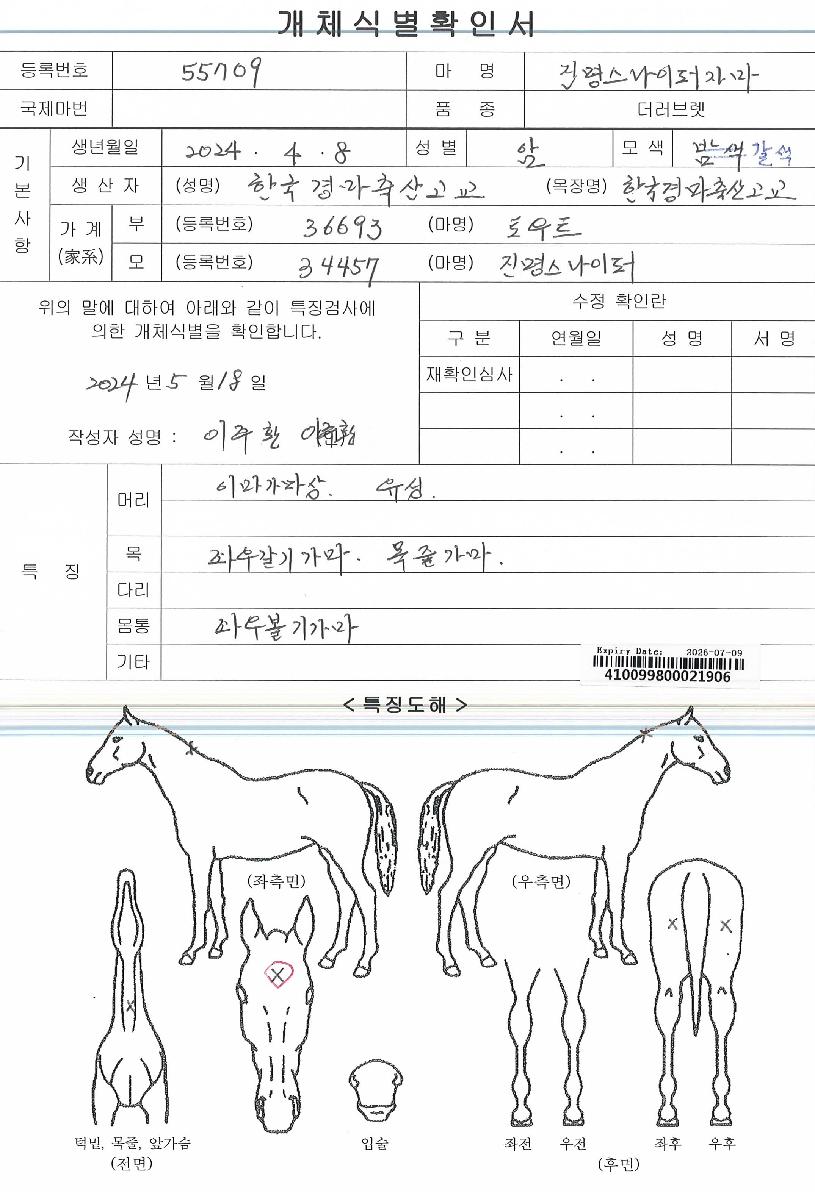 개체식별확인서
등록번호 55709 마 명 진평스나이퍼자마
국제마번 품 종 더러브렛
기본사항
생년월일 2024 . 4 . 8 성 별 암 모 색 밤색 갈색
생 산 자 (성명) 한국경마축산고교 (목장명) 한국경마축산고교
가 계 (家系) 부 (등록번호) 36693 (마명) 토우트
모 (등록번호) 34457 (마명)
위의 말에 대하여 아래와 같이 특징검사에
의한 개체식별을 확인합니다.
2024 년 5 월 18 일
작성자 성명 : 이주환
수정 확인란
구 분 연월일 성 명 서 명
재확인심사 . .
. .
. .
특 징
머리 이마가마상. 유성.
목 좌우갈기가마. 목줄가마.
다리
몸통 좌우볼기가마
기타
Expiry Date: 2026-07-09
410099800021906
< 특징도해 >
(좌측면) (우측면)
턱밑, 목줄, 앞가슴
(전면)
입술
좌전 우전 좌후 우후
(후면)